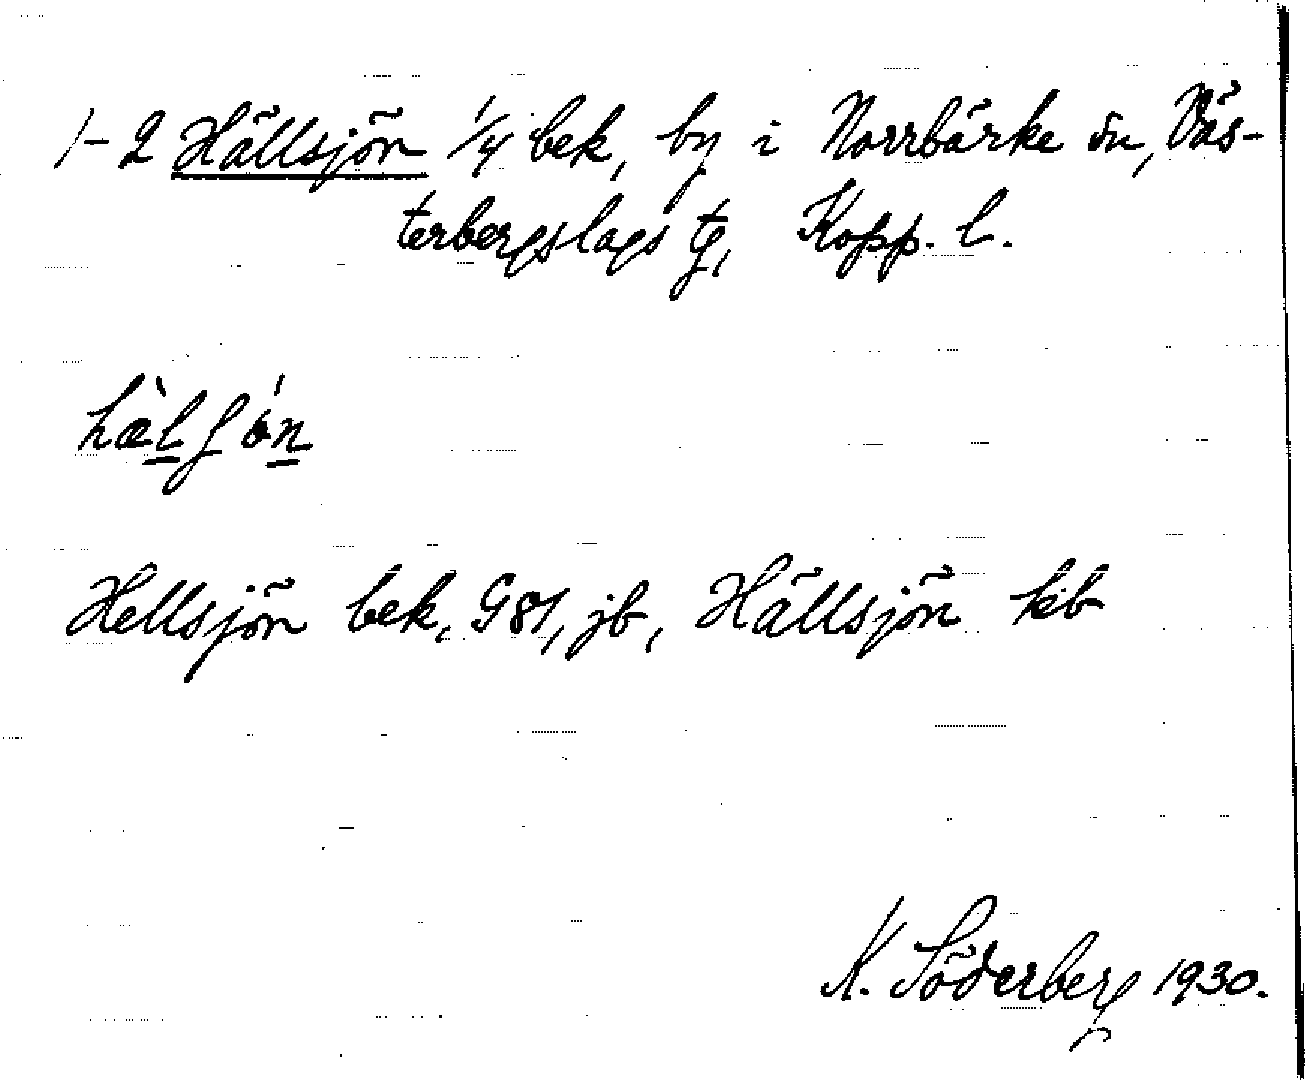 1-2 Hällsjön 1/4 bek, by i Norrbärke sn, Väs-
terbergslags tg, Kopp. l.
hæ̀lʃón
Hellsjön bek, G81, jb, Hällsjön kb
K. Söderberg 1930.